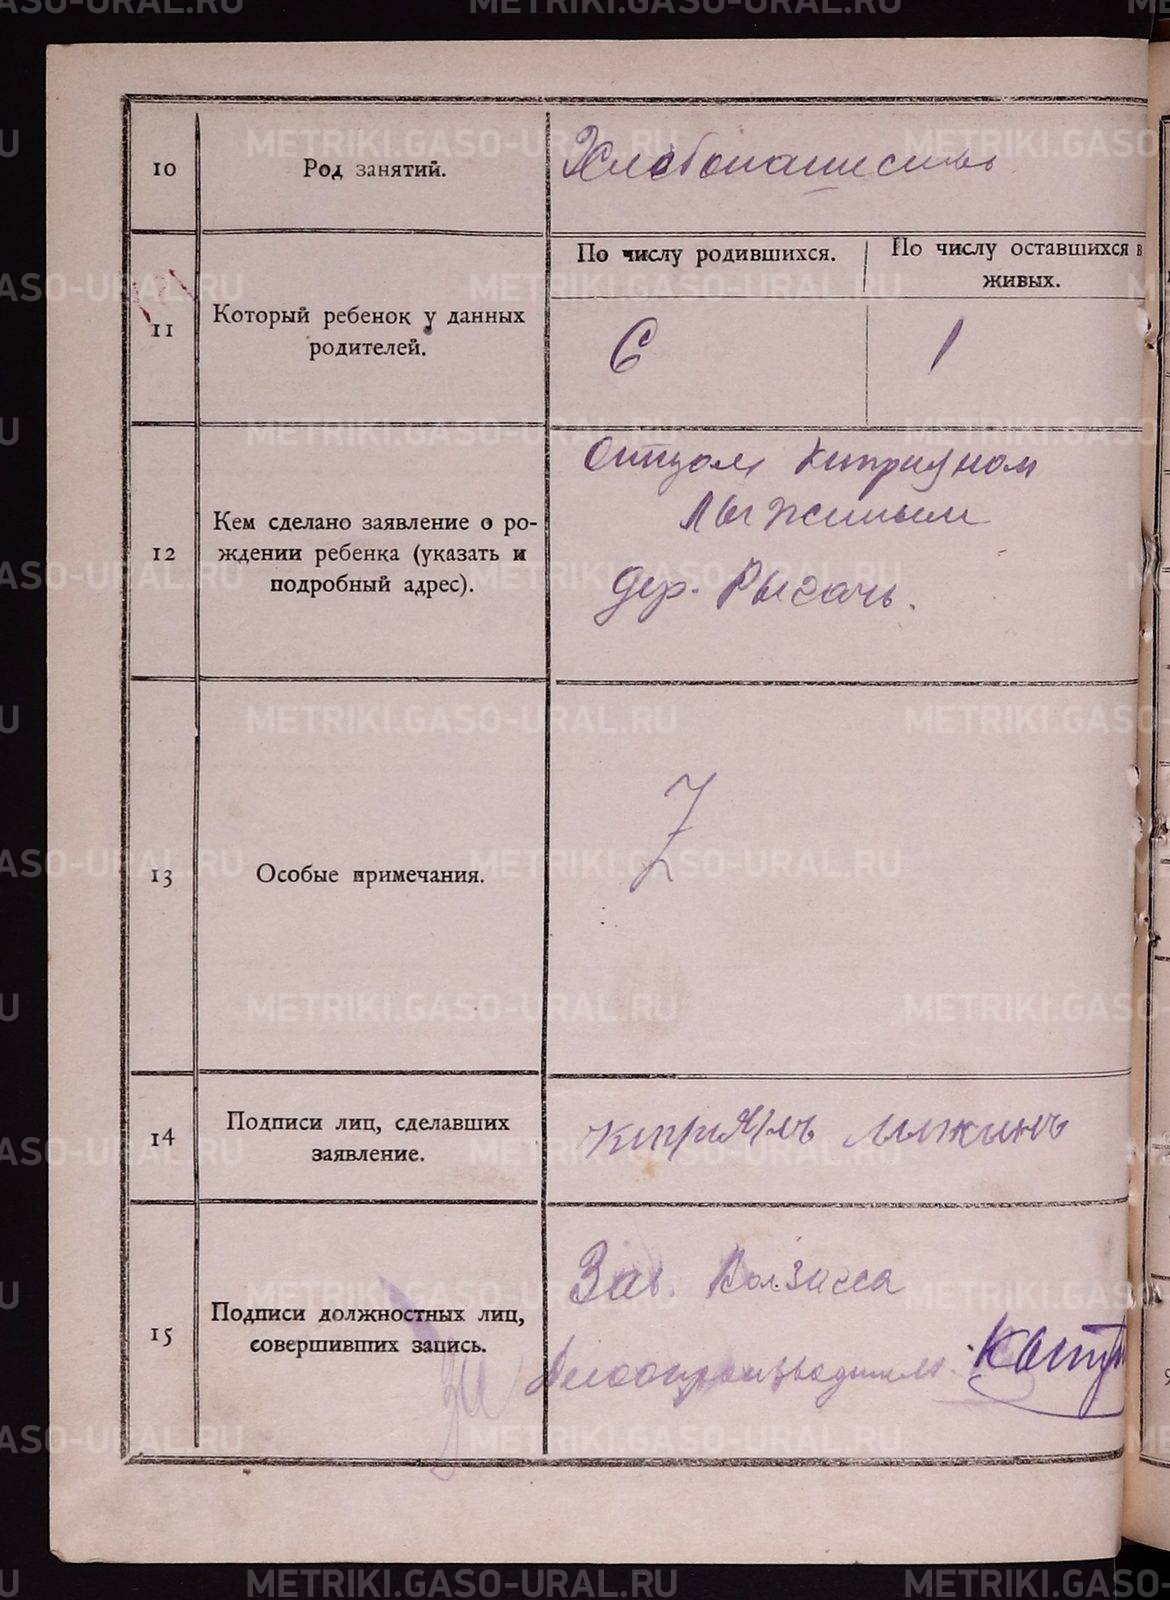 METRIKI.GASO-URAL.RU
10
Род занятий.
Хлебопашество
11
Который ребенок у данных
родителей.
По числу родившихся.
По числу оставшихся в
живых.
6
1
12
Кем сделано заявление о ро-
ждении ребенка (указать и
подробный адрес).
Отцом Киприяном
Лыжиным
дер. Рысачь.
13
Особые примечания.
Z
14
Подписи лиц, сделавших
заявление.
Киприянъ Лыжинъ
15
Подписи должностных лиц,
совершивших запись.
Зав. Волзагса
За Делопроизводитель